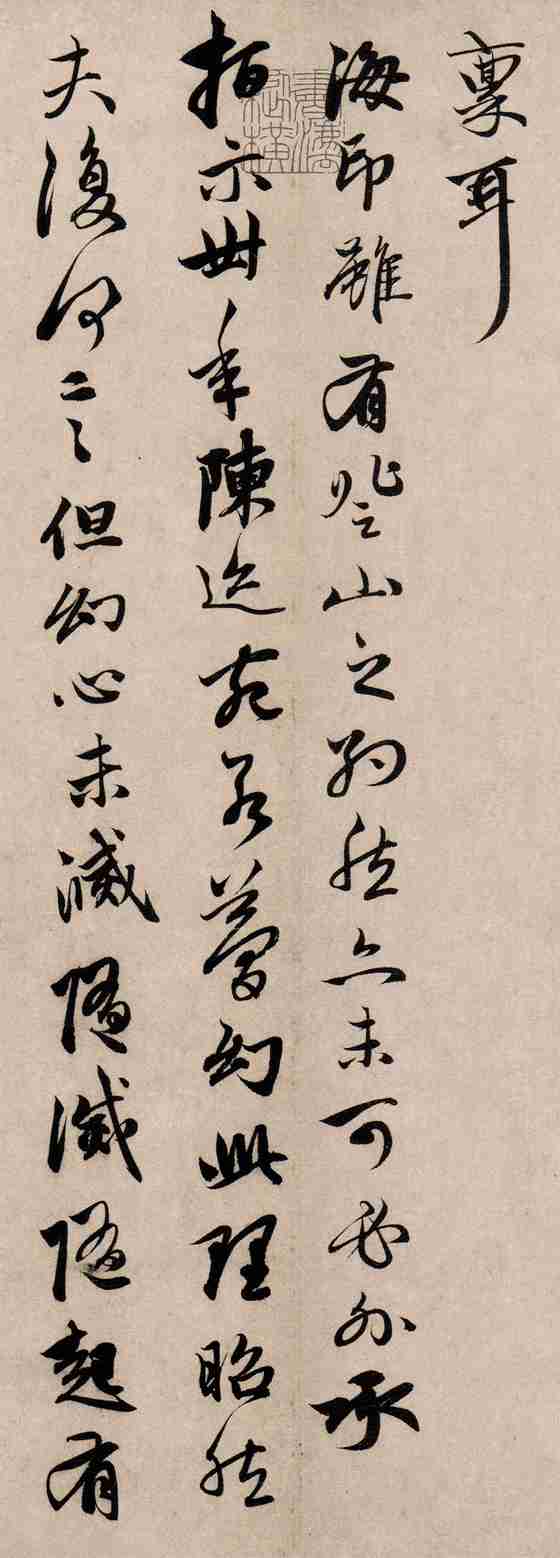 稟耳
海印雖有登山之約然亦未可必外承
指示卅年陳迹宛若夢幻此理昭然
夫復何言但幻心未滅隨滅隨起有